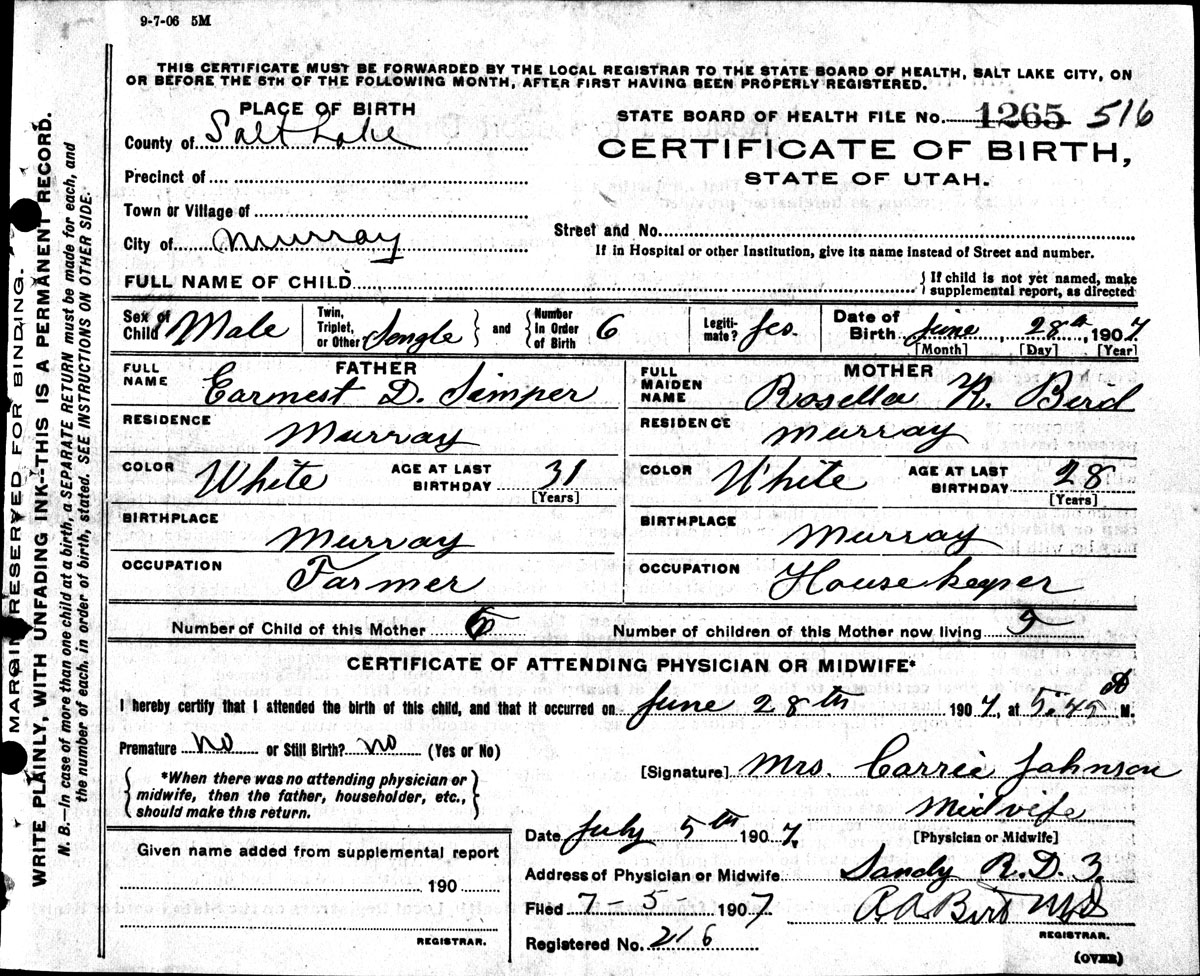 9-7-06 5M
THIS CERTIFICATE MUST BE FORWARDED BY THE LOCAL REGISTRAR TO THE STATE BOARD OF HEALTH, SALT LAKE CITY, ON
OR BEFORE THE 5TH OF THE FOLLOWING MONTH, AFTER FIRST HAVING BEEN PROPERLY REGISTERED.
PLACE OF BIRTH
County of Salt Lake
Precinct of
Town or Village of
City of Murray
STATE BOARD OF HEALTH FILE No. 1265 516
CERTIFICATE OF BIRTH,
STATE OF UTAH.
Street and No.
If in Hospital or other Institution, give its name instead of Street and number.
FULL NAME OF CHILD
{ If child is not yet named, make
supplemental report, as directed
Sex of Child Male
Twin, Triplet, or Other Songle } and { Number In Order of Birth 6
Legiti- mate? Jes.
Date of Birth June 28th, 1907
[Month] [Day] [Year]
FATHER
FULL NAME Earnest D. Simper
RESIDENCE Murray
COLOR White AGE AT LAST BIRTHDAY 31
[Years]
BIRTHPLACE Murray
OCCUPATION Farmer
MOTHER
FULL MAIDEN NAME Rosella K. Berd
RESIDENCE Murray
COLOR White AGE AT LAST BIRTHDAY 28
[Years]
BIRTHPLACE Murray
OCCUPATION House keyser
Number of Child of this Mother 6
Number of children of this Mother now living 5
CERTIFICATE OF ATTENDING PHYSICIAN OR MIDWIFE*
I hereby certify that I attended the birth of this child, and that it occurred on June 28th 1907, at 5.45 M.
Premature No or Still Birth? No (Yes or No)
{ *When there was no attending physician or
midwife, then the father, householder, etc.,
should make this return. }
[Signature] Mrs. Carrie Johnson
Midwife
[Physician or Midwife]
Date July 5th 1907.
Address of Physician or Midwife Sandy R.D. 3.
Filed 7-5-1907.
REGISTRAR.
Registered No. 216
(OVER)
Given name added from supplemental report
190
REGISTRAR.
MARGIN RESERVED FOR BINDING.
WRITE PLAINLY, WITH UNFADING INK--THIS IS A PERMANENT RECORD.
N. B.—In case of more than one child at a birth, a SEPARATE RETURN must be made for each, and
the number of each, in order of birth, stated. SEE INSTRUCTIONS ON OTHER SIDE.